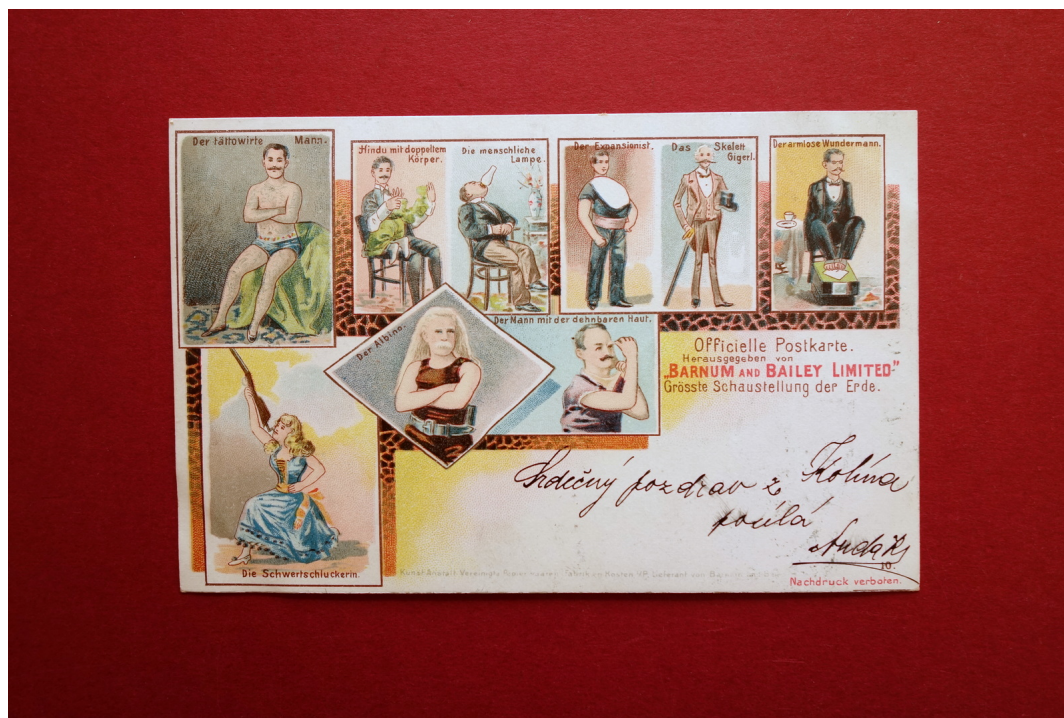 Der tättowirte Mann.
Hindu mit doppeltem
Körper.
Die menschliche
Lampe.
Der Expansionist.
Das Skelett
Gigerl.
Der armlose Wundermann.
Der Albino.
Der Mann mit der dehnbaren Haut.
Officielle Postkarte.
Herausgegeben von
„BARNUM AND BAILEY LIMITED"
Grösste Schaustellung der Erde.
Srdečný pozdrav z Kolína
posílá
Die Schwertschluckerin.
Kunst-Anstalt Vereinigte
10.
Nachdruck verboten.